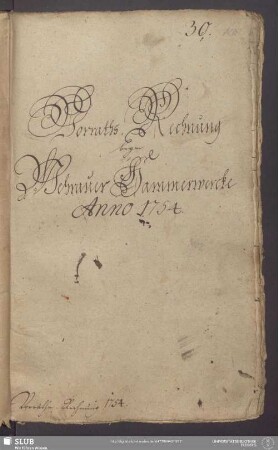 30.
Vorraths Rechnung
beym
Schrauer Hammerwercke
Anno 1754.
Vorraths-Rechnung 1754.
SLUB
Wir führen Wissen.